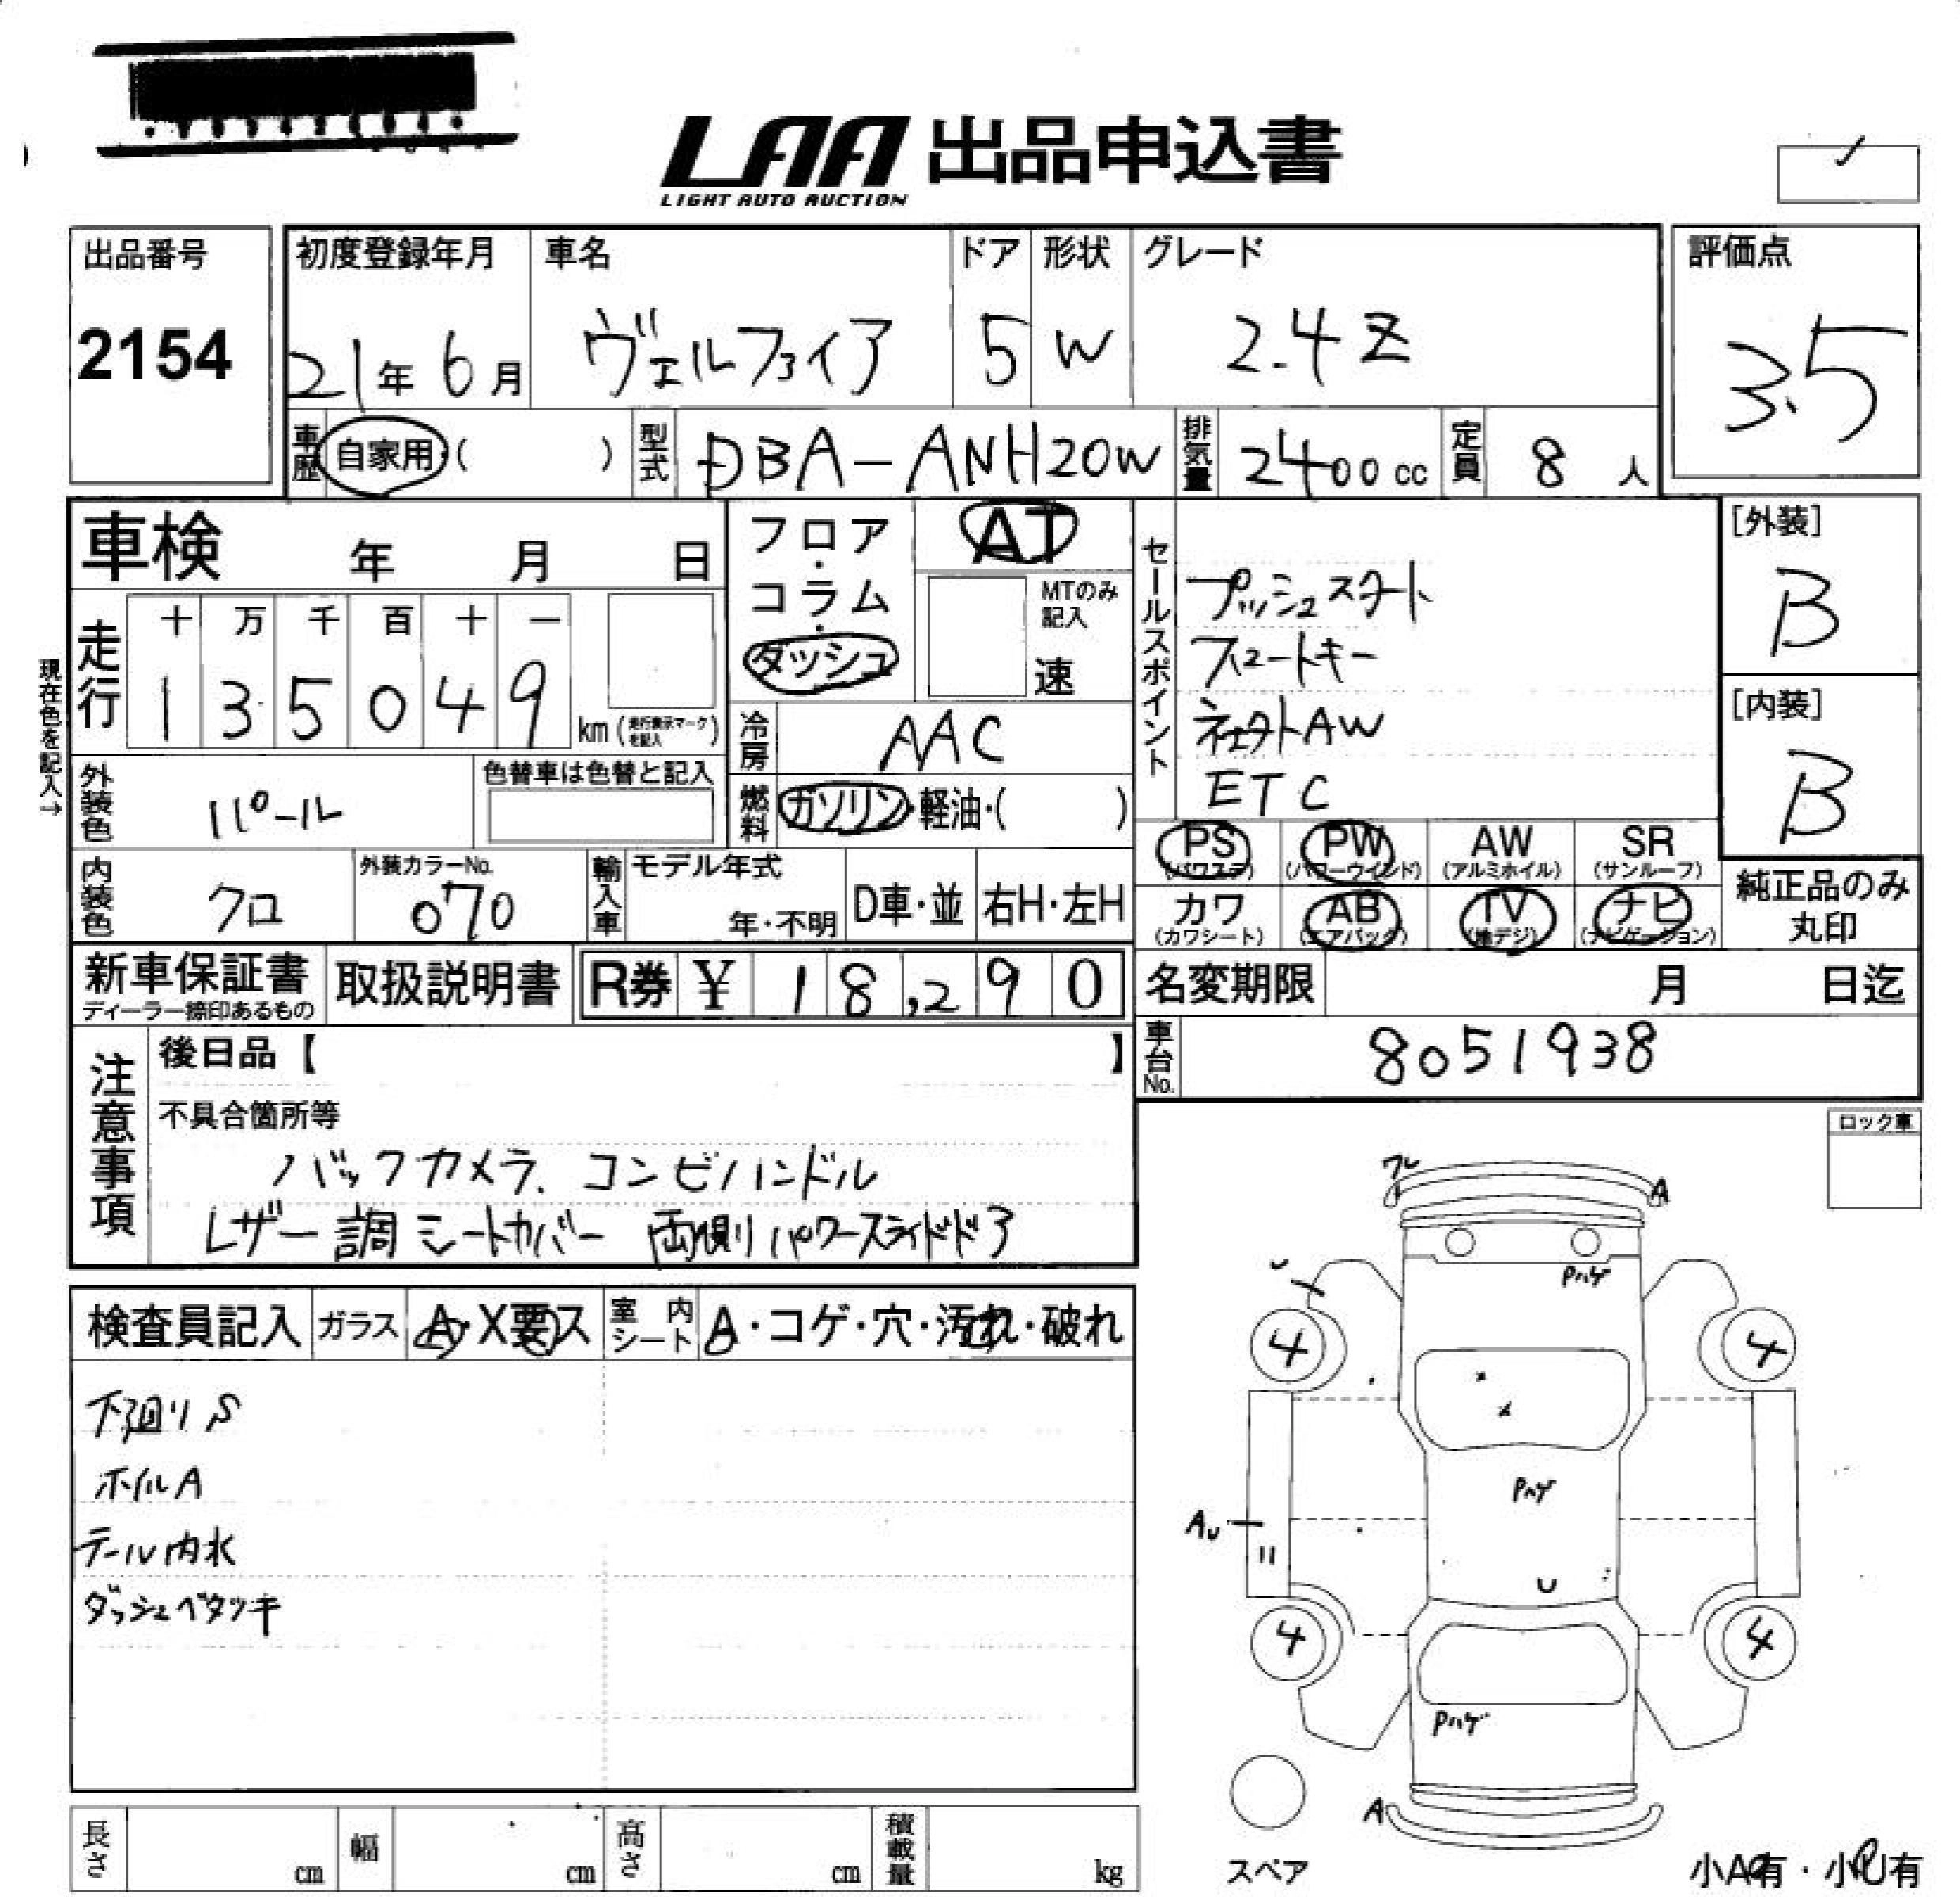 LAA 出品申込書
LIGHT AUTO AUCTION
出品番号
2154
初度登録年月
21年 6月
車名
ヴェルファイア
ドア
5
形状
W
グレード
2.4Z
評価点
3.5
車歴 自家用・( )
型式 DBA-ANH20W
排気量 2400cc
定員 8人
車検 年 月 日
フロア・コラム・ダッシュ
AT
MTのみ記入
速
セールスポイント
プッシュスタート
スマートキー
社外AW
ETC
[外装]
B
[内装]
B
現在色を記入→
走行 十 万 千 百 十 一
1 3 5 0 4 9 km (走行表示マークを記入)
冷房 AAC
外装色 パール
色替車は色替と記入
燃料 ガソリン・軽油・( )
内装色 クロ
外装カラーNo.
070
輸入車 モデル年式
年・不明
D車・並 右H・左H
PS (パワステ)
PW (パワーウインド)
AW (アルミホイル)
SR (サンルーフ)
カワ (カワシート)
AB (エアバック)
TV (地デジ)
ナビ (ナビゲーション)
純正品のみ
丸印
新車保証書
ディーラー捺印あるもの
取扱説明書
R券 ¥ 18,290
名変期限 月 日迄
車台No. 8051938
注意事項
後日品【 】
不具合箇所等
バックカメラ、コンビハンドル
レザー調シートカバー 両側パワースライドドア
ロック車
検査員記入 ガラス A・X要ス 室内シート A・コゲ・穴・汚れ・破れ
下廻りS
ホイルA
テール内水
ダッシュベタツキ
ワレ
A
Pハゲ
4
4
Pハゲ
AU
U
4
4
Pハゲ
A
スペア
小A有・小U有
長さ cm
幅 cm
高さ cm
積載量 kg